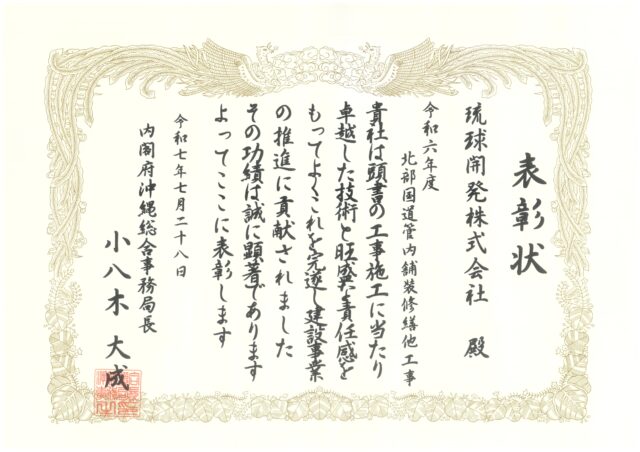 表彰状
琉球開発株式会社 殿
令和六年度
北部国道管内舗装修繕他工事
貴社は頭書の工事施工に当たり
卓越した技術と旺盛な責任感を
もってよくこれを完遂し建設事業
の推進に貢献されました
その功績は誠に顕著であります
よってここに表彰します
令和七年七月二十八日
内閣府沖縄総合事務局長
小八木 大成